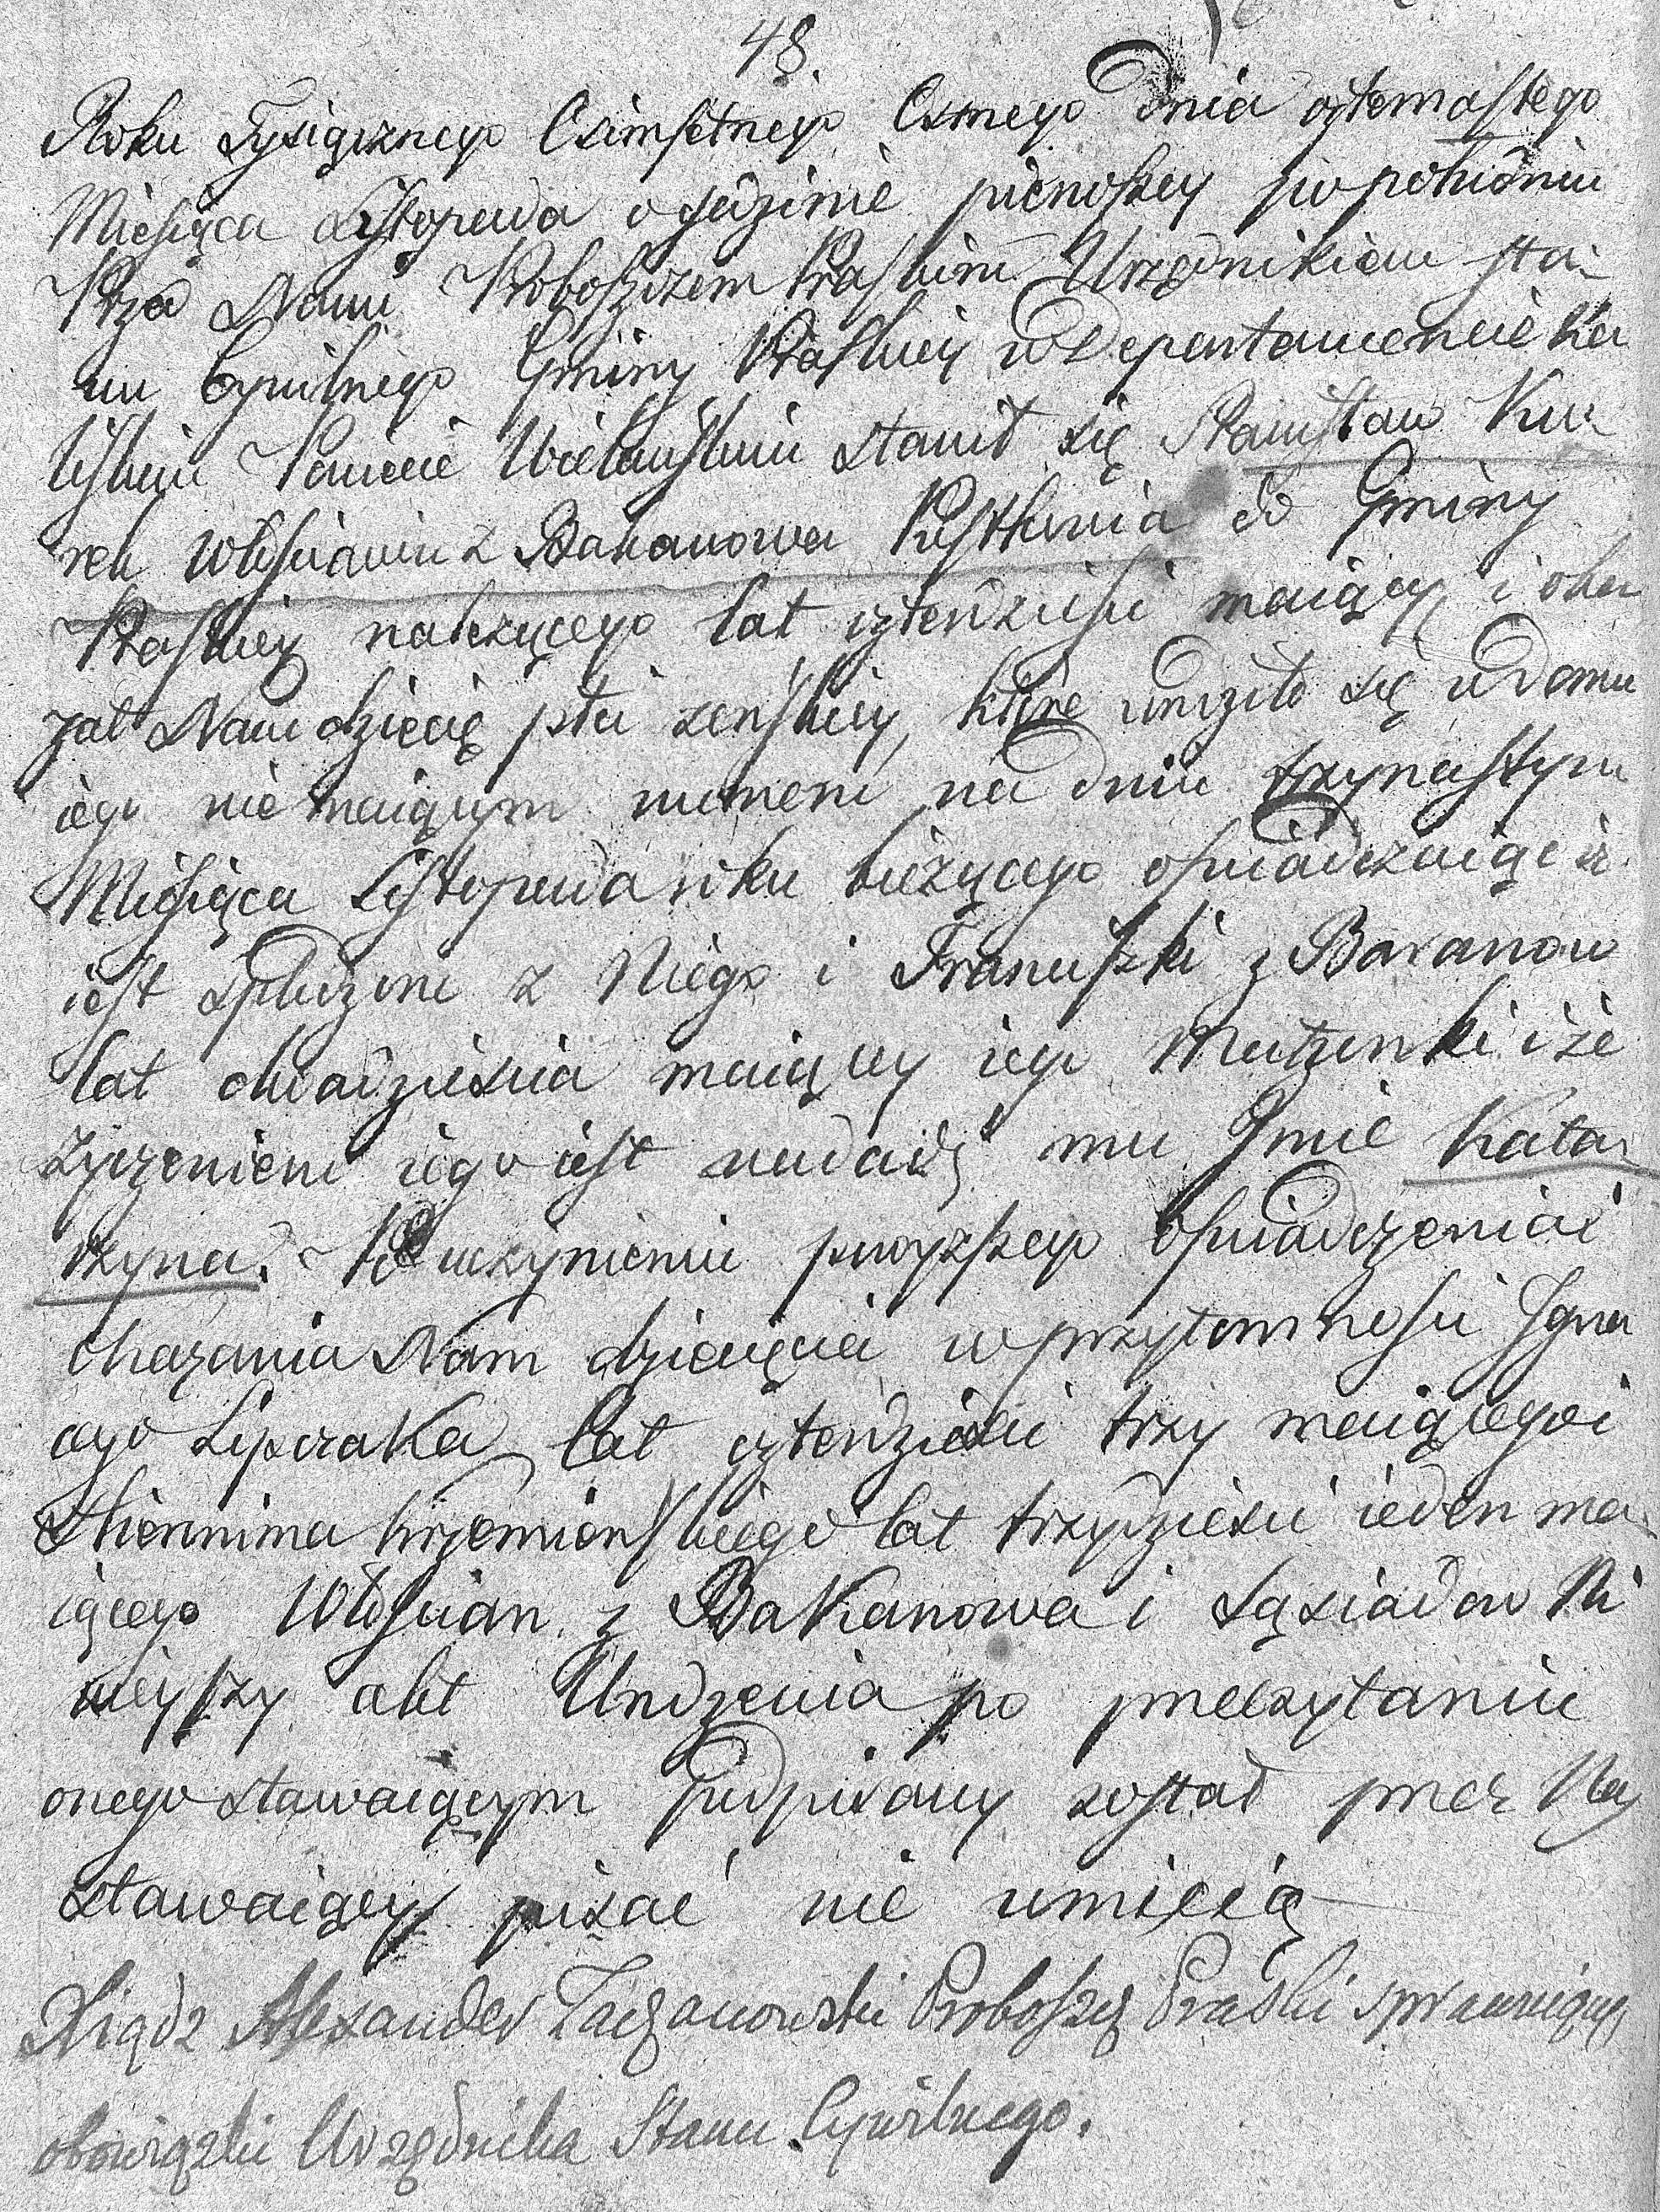 48.
Roku Tysiącznego Osimsetnego Osmego dnia czternastego
Miesiąca Listopada o godzinie pierwszey po południu
Przed Nami Proboszczem Praskim Urzędnikiem sta-
nu Cywilnego Gminy Praskiey w Departamencie Ka
liskim Powiecie Wieluńskim stawił się Stanisław Ku-
rek Włościanin z Bakanowa do Gminy
Praskiey należącego lat czterdzieści maiący i oka
zał Nam dziecię płci żeńskiey, które urodziło się w domu
iego nie maiącym numeru na dniu trzynastym
Miesiąca Listopada roku bieżącego oświadczaiąc iż
iest spłodzone z Niego i Franciszki z Baranow
lat dwadzieścia maiącey iego Małżonki i że
życzeniem iego iest nadać mu Imie Kata-
rzyna. Po uczynieniu powyższego oświadczenia i
okazania Nam dziecięcia w przytomności Igna
cego Lipczaka lat czterdzieści trzy maiącego i
Hieronima Krzemienskiego lat trzydzieści ieden ma-
iącego Włościan z Bakanowa i Sąsiadow Ni
nieyszy akt Urodzenia po przeczytaniu
onego stawaiącym podpisany został przez Nas
stawaiący pisać nie umieią
Xiądz Alexander Taczanowski Proboszcz Praski sprawuiący
obowiązki Urzędnika Stanu Cywilnego.